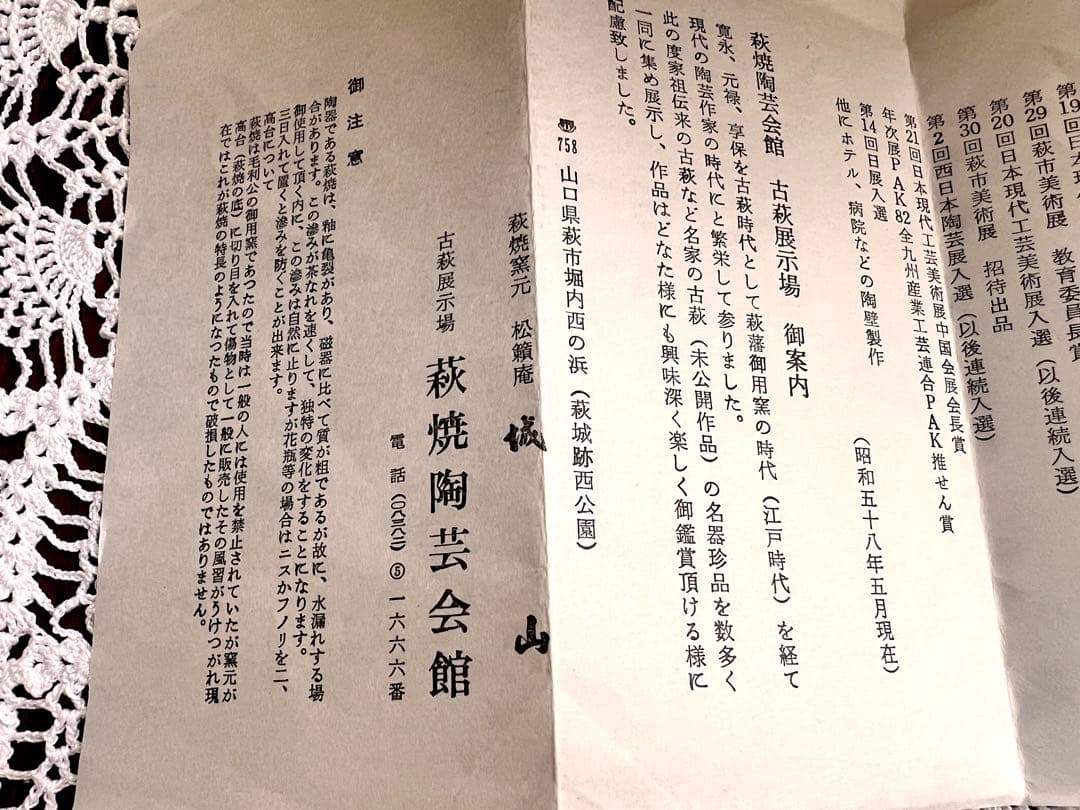 第19回日本現
第29回萩市美術展 教育委員長賞
第20回日本現代工芸美術展入選(以後連続入選)
第30回萩市美術展 招待出品
第2回西日本陶芸展入選(以後連続入選)
第21回日本現代工芸美術展中国会展会長賞
年次展PAK82全九州産業工芸連合PAK推せん賞
第14回日展入選
他にホテル、病院などの陶壁製作
(昭和五十八年五月現在)
萩焼陶芸会館 古萩展示場 御案内
寛永、元禄、享保を古萩時代として萩藩御用窯の時代(江戸時代)を経て
現代の陶芸作家の時代にと繁栄して参りました。
此の度家祖伝来の古萩など名家の古萩(未公開作品)の名器珍品を数多く
一同に集め展示し、作品はどなた様にも興味深く楽しく御鑑賞頂ける様に
配慮致しました。
〠758 山口県萩市堀内西の浜(萩城跡西公園)
萩焼窯元 松籟庵 城山
古萩展示場 萩焼陶芸会館
電話(〇八三八二)⑤一六六六番
御注意
陶器である萩焼は、釉に亀裂があり、磁器に比べて質が粗であるが故に、水漏れする場
合があります。この滲みが茶なれを速くして、独特の変化をすることになります。
御使用して頂く内に、この滲みは自然に止りますが花瓶等の場合はニスかフノリを二、
三日入れて置くと滲みを防ぐことが出来ます。
高台について
萩焼は毛利公の御用窯であつたので当時は一般の人には使用を禁止されていたが窯元が
高台(萩焼の底)に切り目を入れて傷物として一般に販売したその風習がうけつがれ現
在ではこれが萩焼の特長のようになつたもので破損したものではありません。